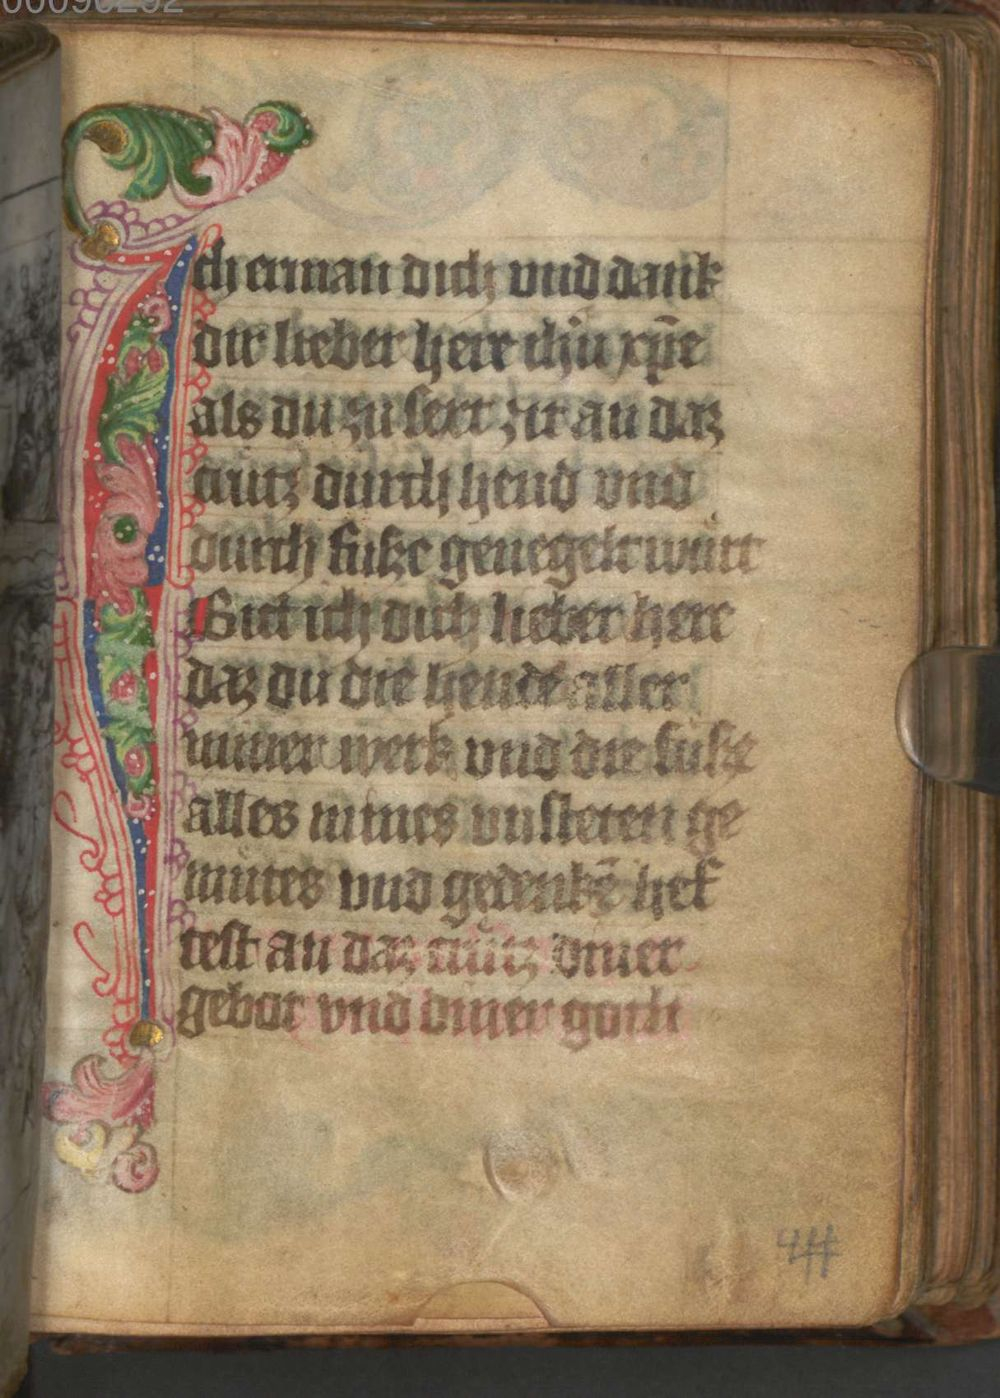 00090292
Ich erman dich vnd dank
dir lieber herr ihū xpē
als du zu sext zit an daz
crütz durch hend vnd
durch füße genegelt würt
Bitt ich dich lieber herr
daz du die hende aller
miner werk vnd die füße
alles mines vnsteten ge
mütes vnd gedenkē hef
test an daz crütz diner
gebot vnd diner gotli
44